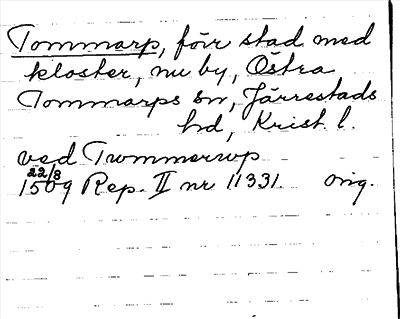 Tommarp, förr stad med
kloster, nu by, Östra
Tommarps sn, Järrestads
hd, Krist. l.
ved Trommerwp
22/8
1509 Rep. II nr 11331. orig.